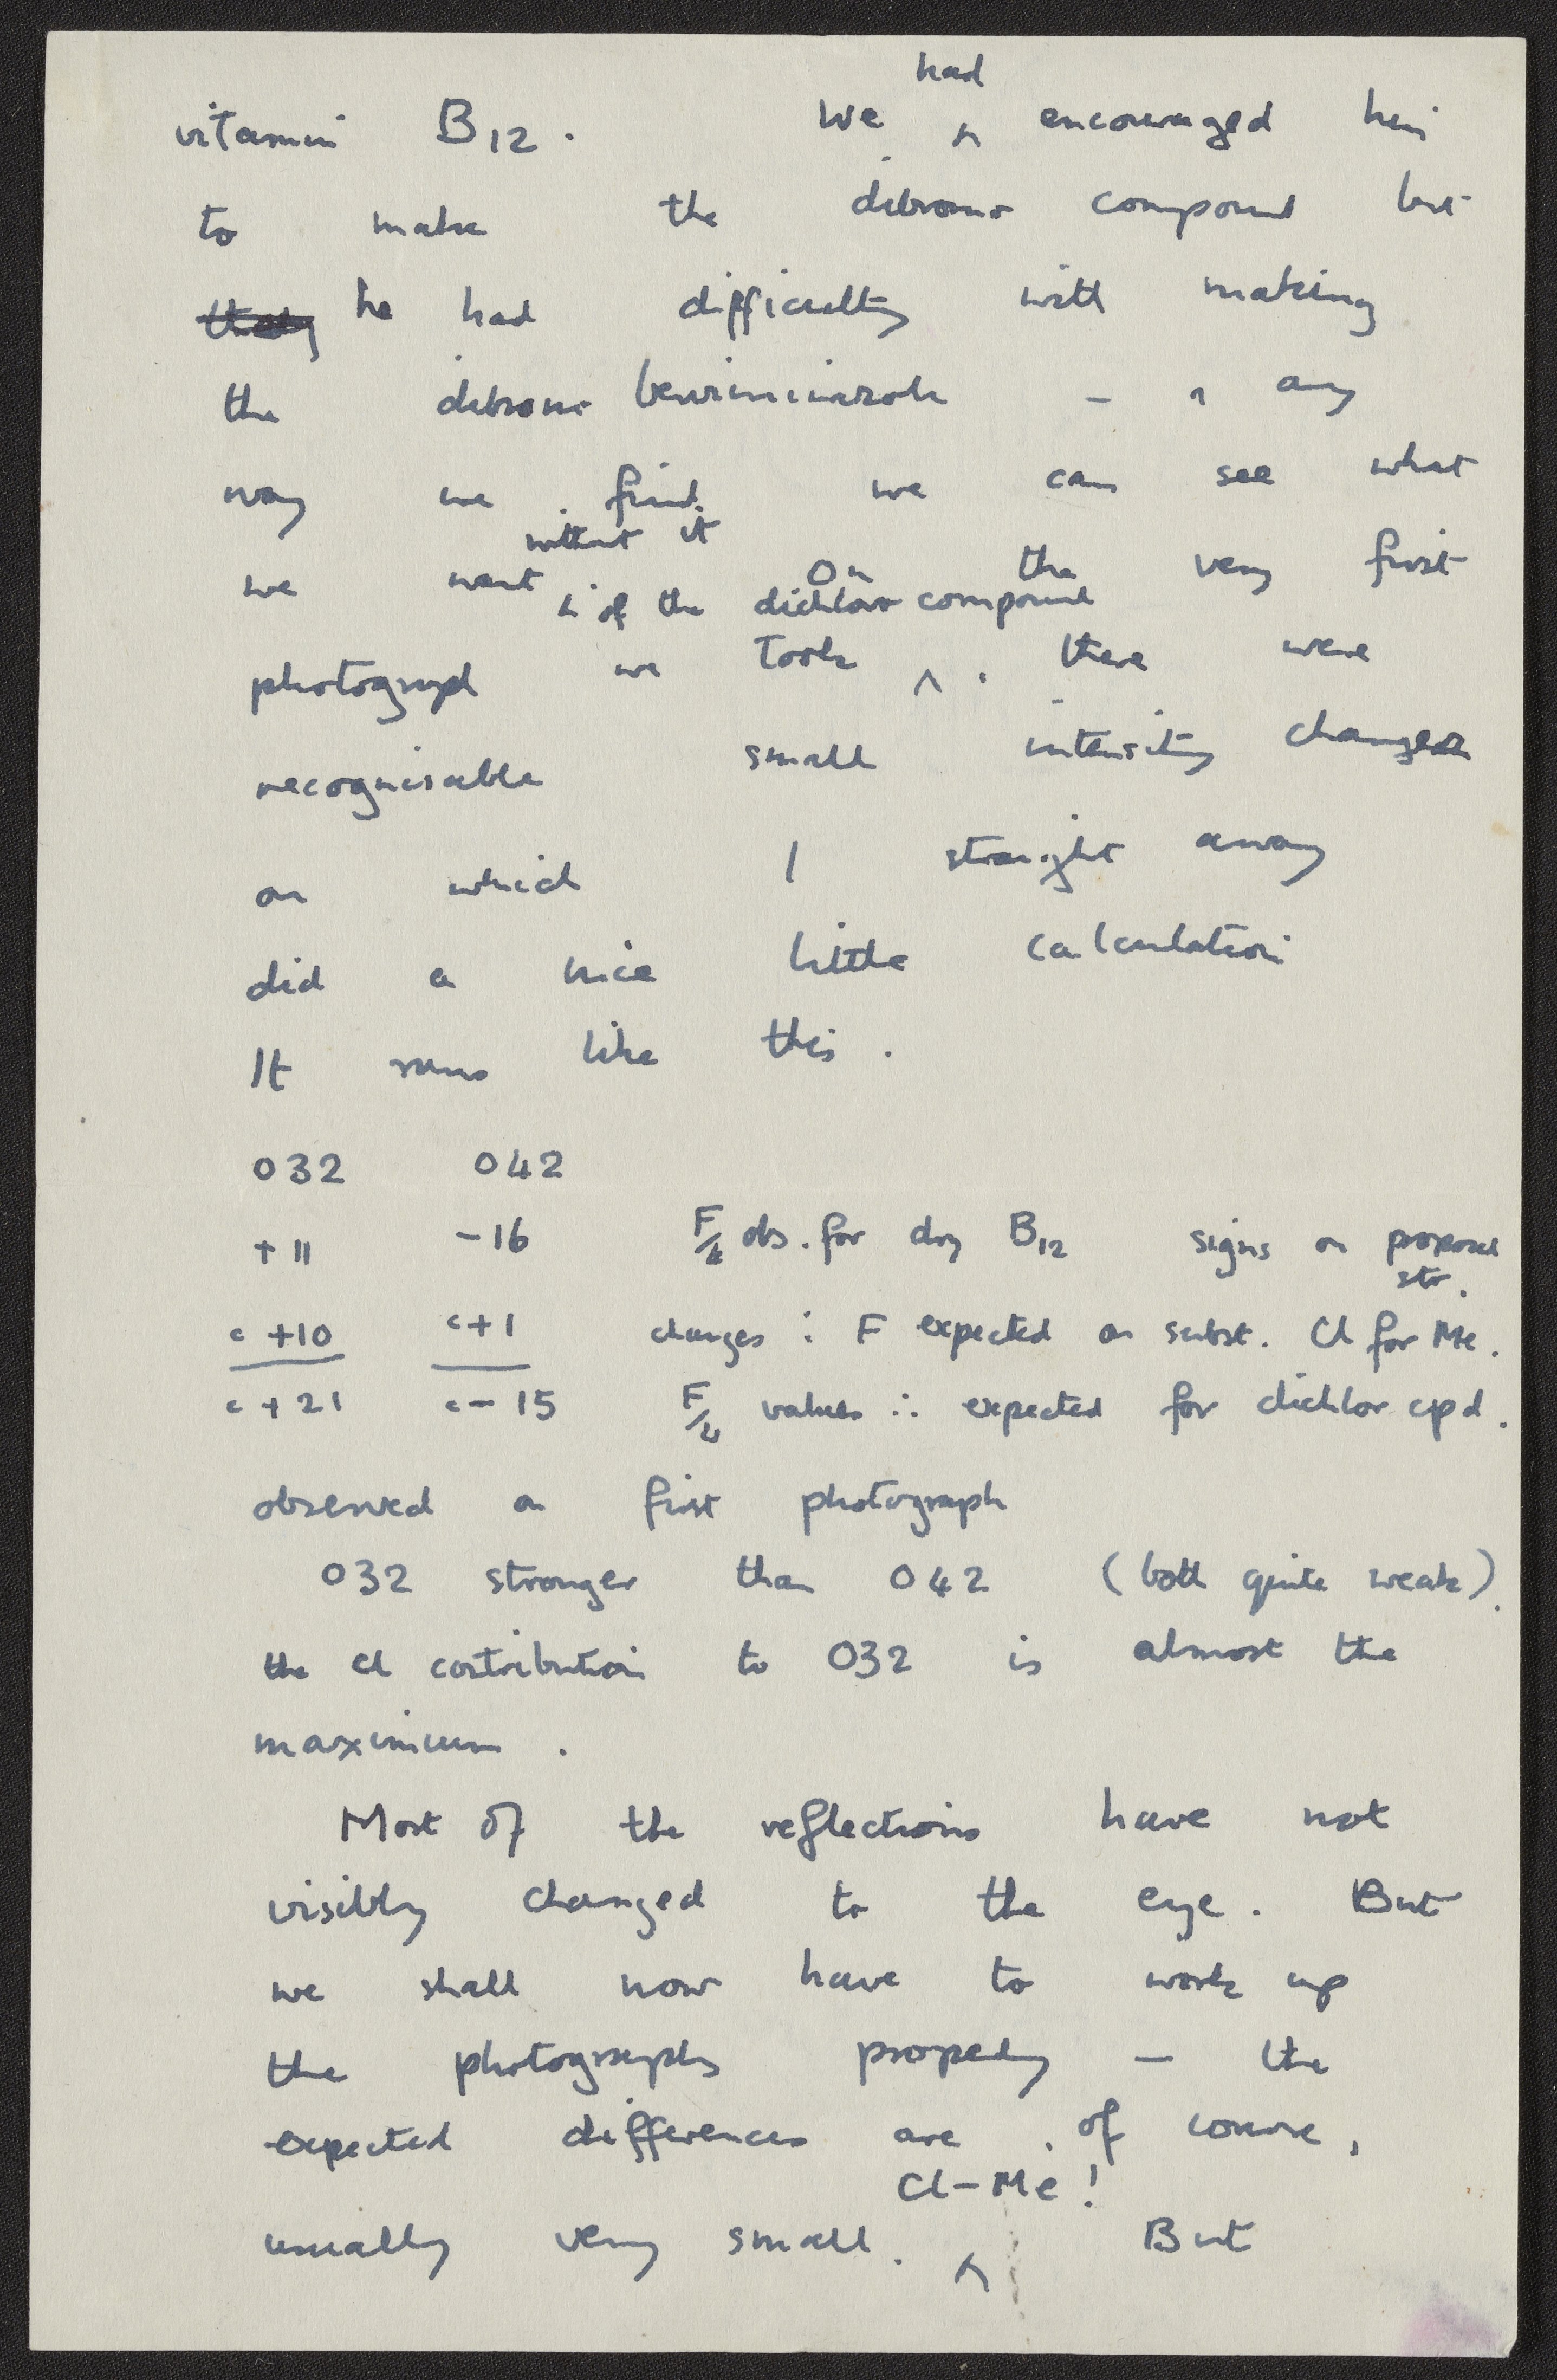 had
vitamin B12. We ^ encouraged him
to make the dibromo compound but
he had difficulty with making
the dibromo benziminazole – any
way we find we can see what
without it
we want ^. On the very first
of the dichloro compound
photograph we took ^. there were
recognisable small intensity changes
on which I straight away
did a nice little calculation
It runs like this.
032 042
+11 -16 F/4 obs. for dry B12 signs on proposed
str.
c +10 c+1 changes in F expected on subst. Cl for Me.
c +21 c-15 F/4 values ∴ expected for dichlor cpd.
observed on first photograph
032 stronger than 042 (both quite weak).
the Cl contribution to 032 is almost the
maximum.
Most of the reflections have not
visibly changed to the eye. But
we shall now have to work up
the photographs properly – the
expected differences are, of course,
Cl-Me!
usually very small. ^ But